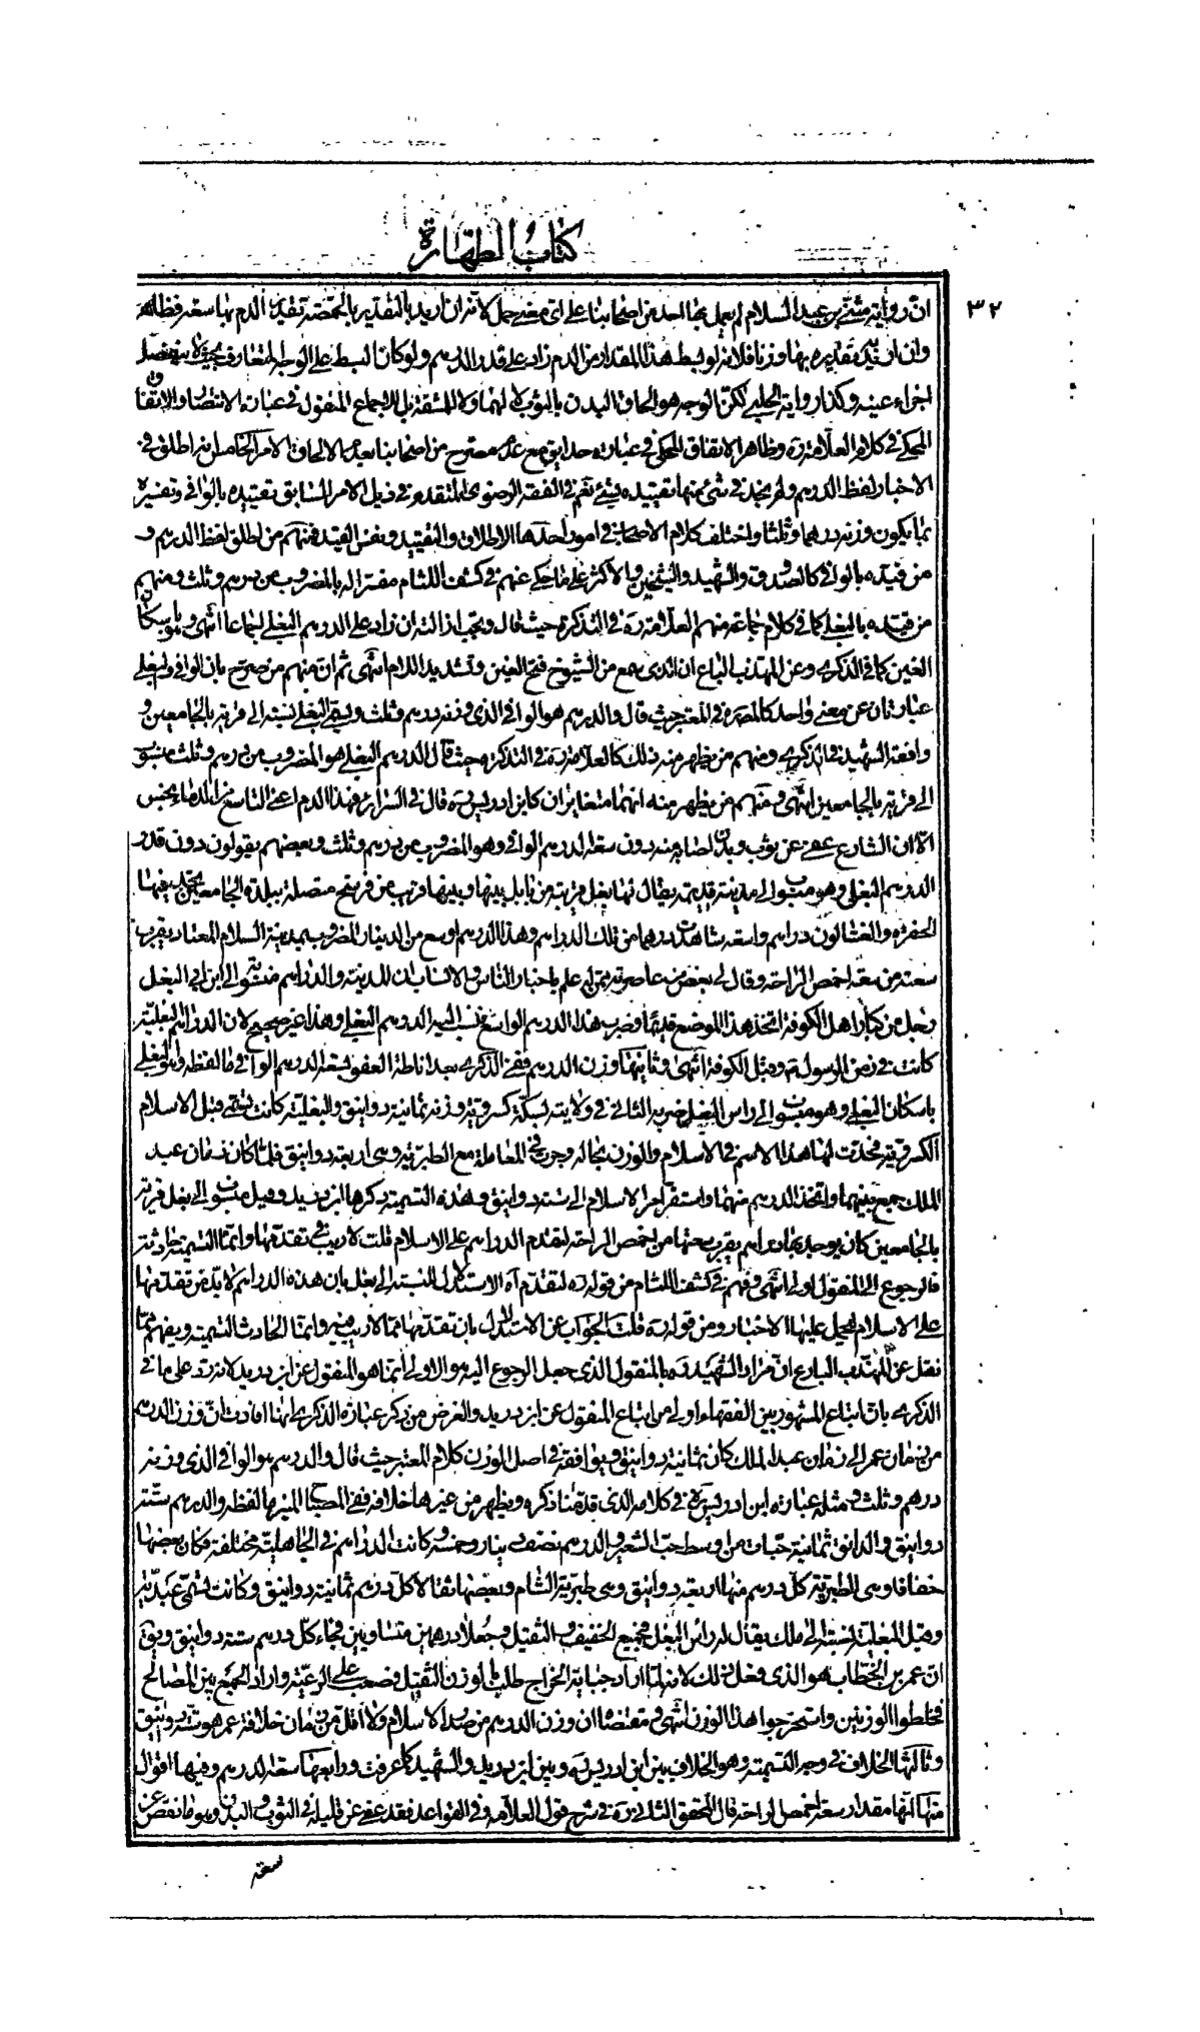 كتاب الطهارة
٣٢
ان رواية مثنى بن عبد السلام لم يعمل بها احد من اصحابنا على اى معنى حمل لانه ان اريد بالتقدير بالحمصة تقدير الدم بها سعة فظاهر
وان اريد تقديره بها وزنا فلانه لو بسط هذا المقدار من الدم زاد على قدر الدرهم ولو كان البسط على الوجه المتعارف بحيث لا ينفصل
اجزاء عينه وكذا رواية الحلبى لكن الوجه هو الحاق البدن بالثوب لا لهما ولا للمشقة بل للاجماع المنقول فى عبارة الانتصار والاتفاق
المحكى فى كلام العلامة ره وظاهر الاتفاق المحكى فى عبارة حدايق مع عدم مصرح من اصحابنا بعدم الالحاق الامر الخامس انه اطلق فى
الاخبار لفظ الدرهم ولم نجد فى شئ منها تقييده بشئ نعم فى الفقه الرضوى المتقدم فى ذيل الامر السابق تقييده بالوافى وتفسيره
بما يكون وزنه درهما وثلثا واختلف كلام الاصحاب فى امور احدها الاطلاق والتقييد ونفس القيد فمنهم من اطلق لفظ الدرهم و
من قيده بالوافى كالصدوق والشهيد والشيخين والاكثر على ما حكى عنهم فى كشف اللثام مفسرا له بالمضروب من درهم وثلث ومنهم
من قيده بالبغلى كما فى كلام جماعة منهم العلامة ره فى التذكرة حيث قال وتجب ازالته ان زاد على الدرهم البغلى اجماعا انتهى وهو باسكان
الغين كما فى الذكرى وعن المهذب البارع ان الذى سمع من الشيوخ فتح الغين وتشديد اللام انتهى ثم ان منهم من صرح بان الوافى والبغلى
عبارتان عن معنى واحد كالمصره فى المعتبر حيث قال والدرهم هو الوافى الذى وزنه درهم وثلث ويسمى البغلى نسبة الى قرية بالجامعين و
وافقه الشهيد فى الذكرى ومنهم من يظهر منه ذلك كالعلامة ره فى التذكرة حيث قال الدرهم البغلى هو المضروب من درهم وثلث منسوب
الى قرية بالجامعين انتهى ومنهم من يظهر منه انهما متغايران كابن ادريس ره قال فى السرائر فهذا الدم اعنى التاسع من الدماء نجس
الا ان الشارع عفى عن ثوب وبدن اصابه منه دون سعة الدرهم الوافى وهو المضروب من درهم وثلث وبعضهم يقولون دون قدر
الدرهم البغلى وهو منسوب الى مدينة قديمة يقال لها بغل قريبة من بابل بينها وبينها قريب من فرسخ متصلة ببلدة الجامعين تجد فيها
الحفرة والغسالون دراهم واسعة شاهدت درهما من تلك الدراهم وهذا الدرهم اوسع من الدينار المضروب بمدينة السلام المعتاد يقرب
سعته من سعة اخمص الراحة وقال لى بعض من عاصرته ممن له علم باخبار الناس والانساب ان المدينة والدراهم منسوبة الى ابن ابى البغل
رجل من كبار اهل الكوفة اتخذ هذا الموضع قديما وضرب هذا الدرهم الواسع فنسب اليه الدرهم البغلى وهذا غير صحيح لان الدراهم البغلية
كانت فى زمن الرسول ص وقبل الكوفة انتهى وثانيها وزن الدرهم ففى الذكرى بعد اناطة العفو بسعة الدرهم الوافى ما لفظه وهو البغلى
باسكان البغلى وهو منسوب الى راس البغل ضربه الثانى فى ولايته بسكة كسروية وزنه ثمانية دوانيق والبغلية كانت تسمى قبل الاسلام
الكسروية فحدث لها هذا الاسم فى الاسلام والوزن بحاله وجرت فى المعاملة مع الطبرية وهى اربعة دوانيق فلما كان زمان عبد
الملك جمع بينهما واتخذ الدرهم منهما واستقر امر الاسلام الى ستة دوانيق وهذه التسمية ذكرها ابن دريد وقيل منسوب الى بغل قرية
بالجامعين كان يوجد بها دراهم يقرب سعتها من اخمص الراحة لتقدم الدراهم على الاسلام قلت لا ريب فى تقدمها وانما التسمية حادثة
فالرجوع الى المنقول اولى انتهى وفهم فى كشف اللثام من قوله ره لتقدم آه الاستدلال للنسبة الى بغل بان هذه الدراهم لا بد من تقدمها
على الاسلام ليحمل عليها الاخبار ومن قوله ره قلت الجواب عن الاستدلال بان تقدمها مما لا ريب فيه وانما الحادث التسمية ويفهم مما
نقل عن المهذب البارع ان مراد الشهيد ره بالمنقول الذى جعل الرجوع اليه هو الاولى انما هو المنقول عن ابن دريد لانه رد على ما فى
الذكرى بان اتباع المشهور بين الفقهاء اولى من اتباع المنقول عن ابن دريد والغرض من ذكر عبارة الذكرى انها افادت ان وزن الدرهم
من زمان عمر الى زمان عبد الملك كان ثمانية دوانيق ويوافقه فى اصل الوزن كلام المعتبر حيث قال والدرهم هو الوافى الذى وزنه
درهم وثلث ومثله عبارة ابن ادريس ره فى كلامه الذى قدمنا ذكره ويظهر من غيرها خلافه ففى المصباح المنير ما لفظه والدرهم ستة
دوانيق والدانق ثمانية حبات من اوسط حب الشعير والدرهم نصف دينار وخمسه وكانت الدراهم فى الجاهلية مختلفة فكان بعضها
خفافا وهى الطبرية كل درهم منها اربعة دوانيق وهى طبرية الشام وبعضها ثقالا كل درهم ثمانية دوانيق وكانت تسمى عبدية
وقيل البغلية نسبة الى ملك يقال له راس البغل فجمع الخفيف والثقيل وجعلا درهمين متساويين فجاء كل درهم ستة دوانيق ويق
ان عمر بن الخطاب هو الذى فعل ذلك لانه لما اراد جباية الخراج طلب بالوزن الثقيل فصعب على الرعية واراد الجمع بين المصالح
فخلطوا الوزنين واستخرجوا هذا الوزن انتهى ومقتضاه ان وزن الدرهم من صدر الاسلام ولا اقل من زمان خلافة عمر هو ستة دوانيق
وثالثها الخلاف فى وجه التسمية وهو الخلاف بين ابن ادريس ره وبين ابن دريد والشهيد كما عرفت ورابعها سعة الدرهم وفيها اقوال
منها انها مقدار سعة اخمص الراحة قال المحقق الثانى ره فى شرح قول العلامة ره فى القواعد فقد عفى عن قليله فى الثوب والبدن وهو ما نقص عن
سعة